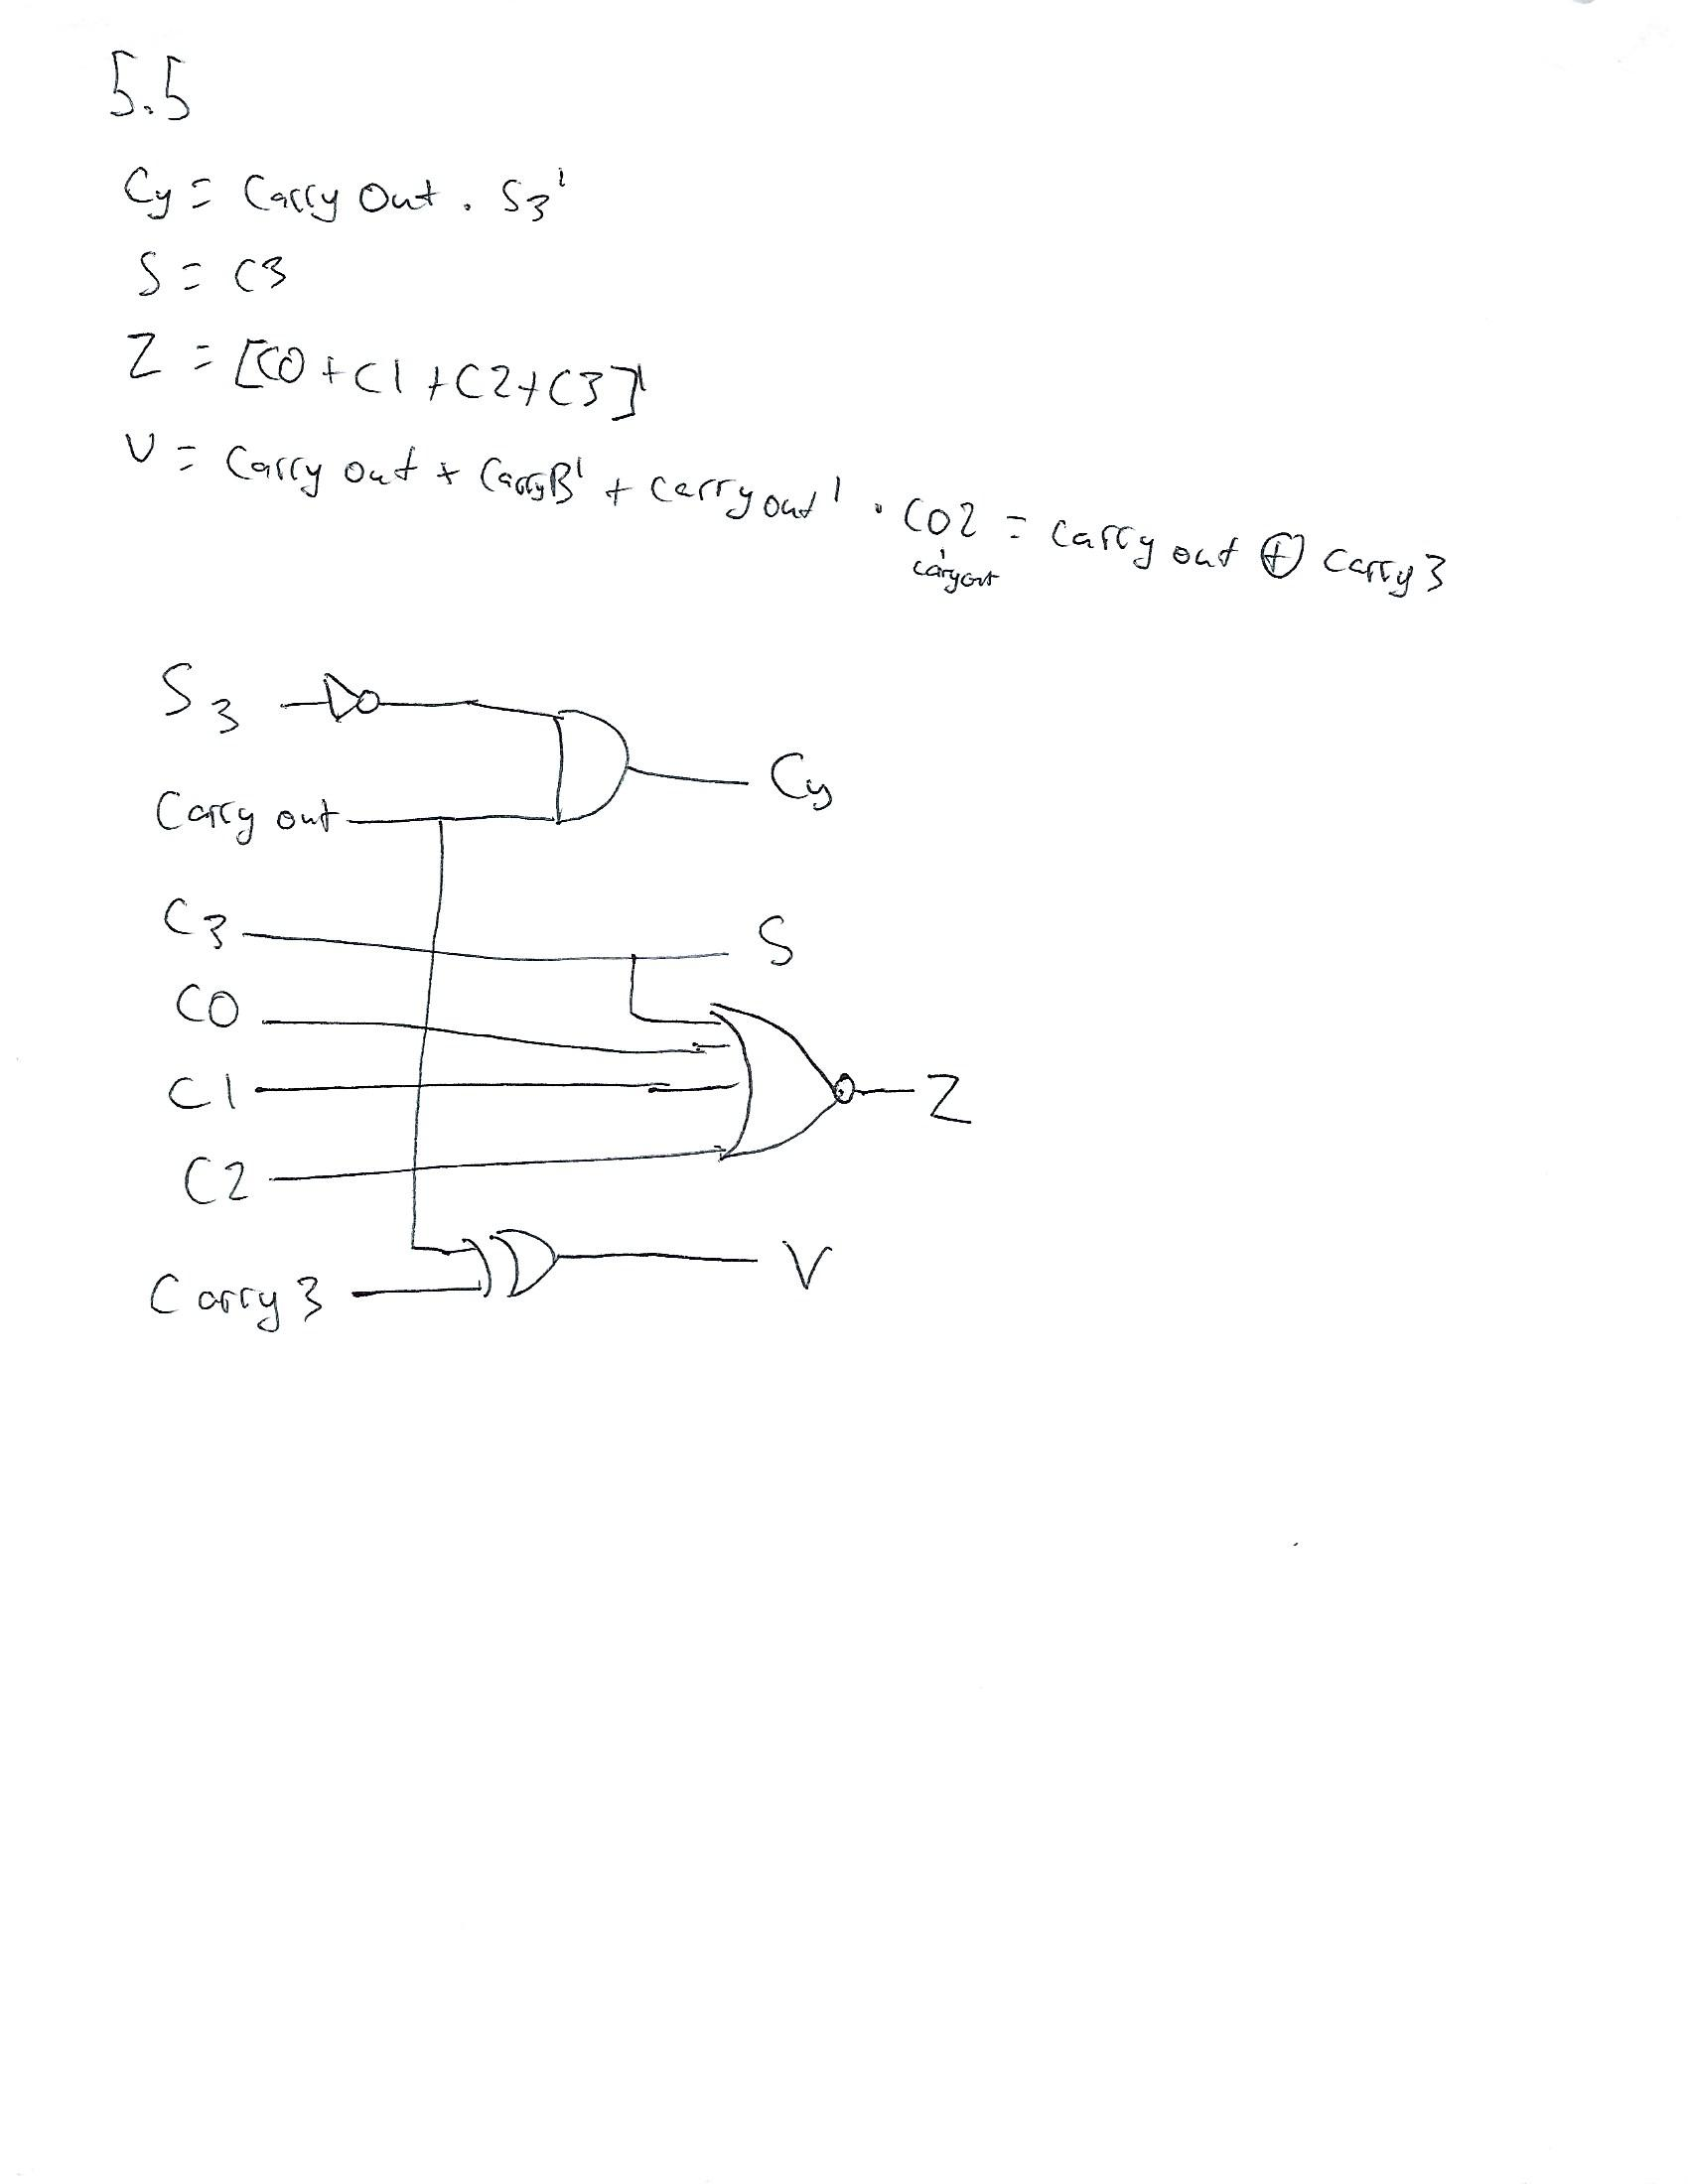 5.5
Cy = Carry Out . S3'
S = C3
Z = [C0 + C1 + C2 + C3]'
V = Carry out * CarryB' + Carry out' . CO2 = Carry out ⊕ Carry3
carryout
S3
Cy
Carry out
C3
S
C0
C1
Z
C2
V
Carry 3